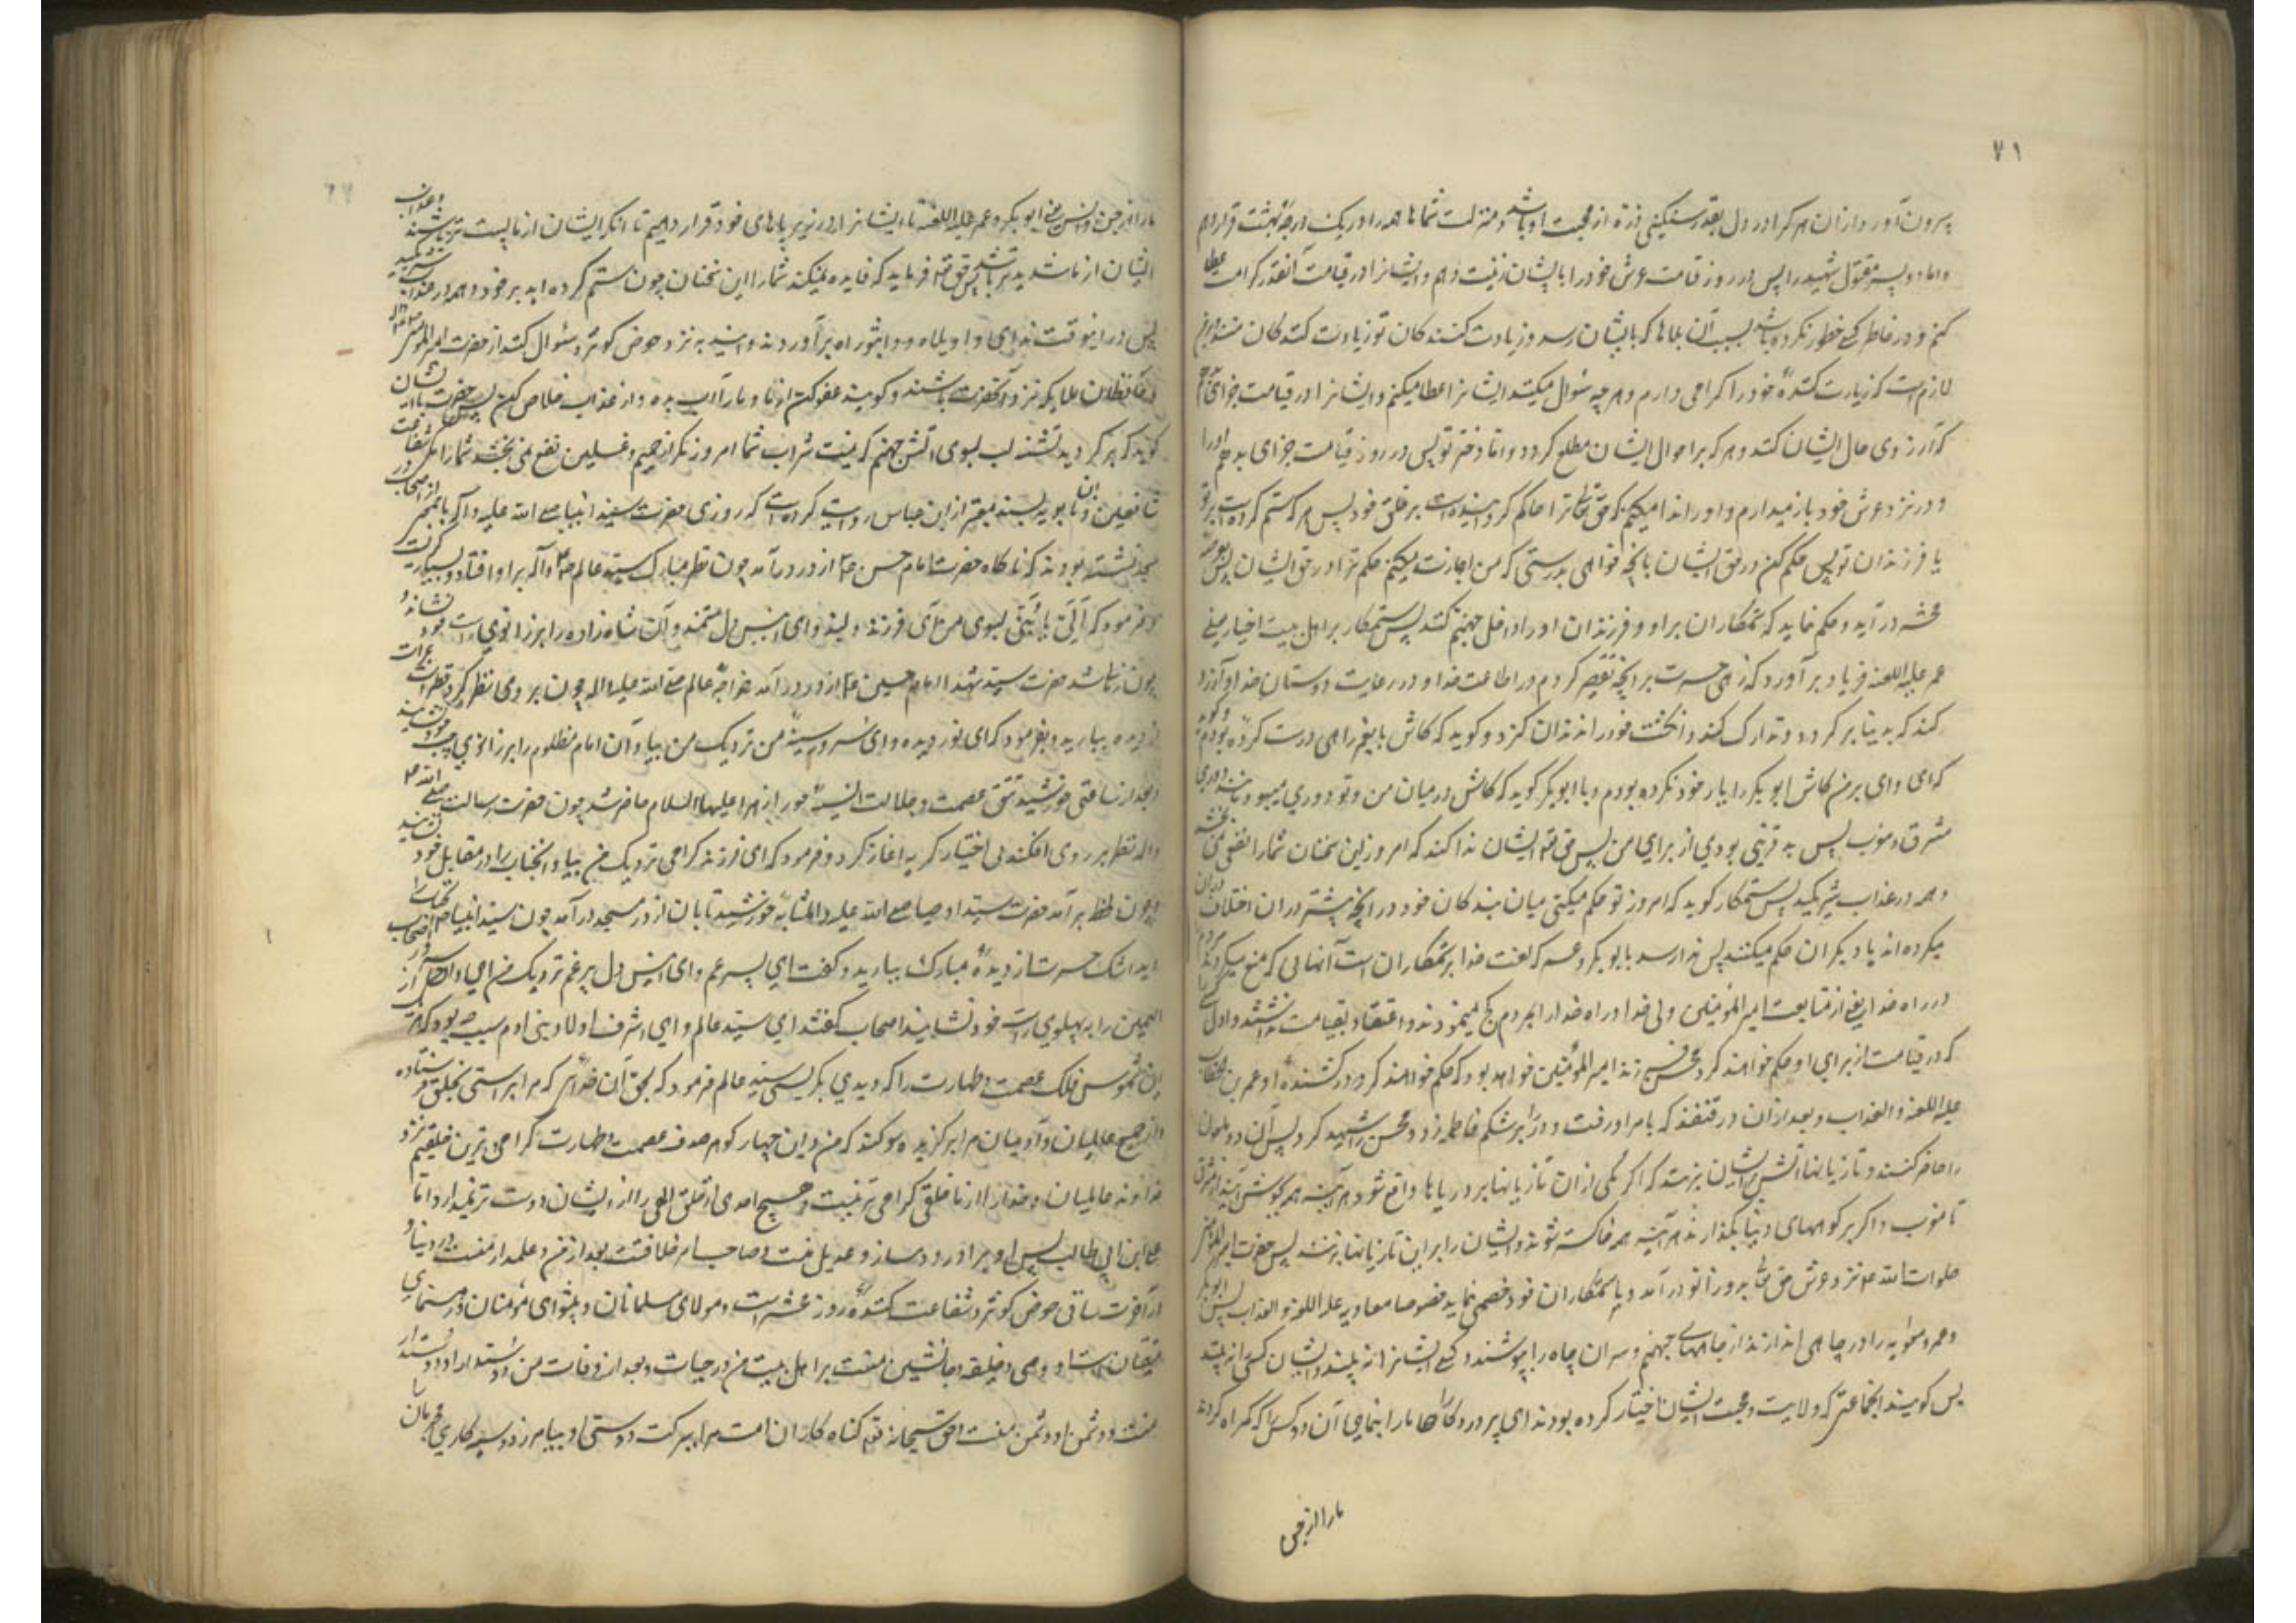 ۷۱
بیرون آورد ازان هر کرا در دل بقدر سنگینی ذره از محبت او باشد و منزلت شما ها همه را در یک درجه بهشت قرار دهم
و اما دو پسر مقتول شهید را پس در روز قیامت عرش خود را بایشان زینت دهم و ایشانرا در قیامت آنقدر کرامت عطا
کنم و در خاطر کسی خطور نکرده باشد بسبب آن بلاها که بایشان رسد و زیارت کنندکان تو زیارت کنندکان منند و بر من
لازم است که زیارت کنندۀ خود را کرامی دارم و هر چه سئوال میکنند ایشانرا عطا میکنم و ایشانرا در قیامت جزای دهم
که آرزوی حال ایشان کنند و هر که بر احوال ایشان مطلع کردد و اما دختر تو پس در روز قیامت جزای بدهم او را
و در نزد عرش خود باز میدارم و او را ندا میکنم که حق تعالی ترا حاکم کردانیده است بر خلق خود پس هر که ستم کرده است بر تو
یا فرزندان تو پس حکم کن در حق ایشان بآنچه خواهی بدرستی که من اجازت میکنم حکم ترا در حق ایشان پس
محشر در آید و حکم نماید که ستمکاران بر او و فرزندان او را داخل جهنم کنند پس ستمکار بر اهل بیت اخیار یعنی
عمر علیه اللعنه فریاد بر آورد که زهی حسرت بر آنچه تقصیر کردم در اطاعت خدا و در رعایت دوستان خدا و آرزو
کند که بدنیا بر کردد و تدارک کند و انکشت خود را بدندان کزد و کوید که کاش با پیغمبر راهی درست کرده بودم و کوید
که ای وای بر من کاش ابوبکر را یار خود نکرده بودم و با ابوبکر کوید که کاش درمیان من و تو دوری میبود مانند دوری
مشرق و مغرب پس بد قرینی بودی از برای من پس حق تعالی ایشان ندا کند که امروز این سخنان شما را نفعی نمی بخشد
و همه در عذاب شریکید پس ستمکار کوید که امروز تو حکم میکنی میان بندکان خود در آنچه پیشتر دران اختلاف
میکرده اند یا دیکران حکم میکنند پس ندا رسد بابوبکر و عمر که لعنت خدا بر ستمکاران است آنهائی که منع میکردند مردم را
در راه خدا یعنی از متابعت امیرالمؤمنین ولی خدا و راه خدا را بمردم کج مینمودند و اعتقاد بقیامت نداشتند و اول کسی
که در قیامت از برای او حکم خواهند کرد محسن فرزند امیرالمؤمنین خواهد بود که حکم خواهند کرد در کشندۀ او عمر بن خطاب
علیه اللعنه و العذاب و بعد ازان در قنفذ که بامر او رفت و در را بر شکم فاطمه زد و محسن را شهید کرد پس آن دو ملعون
را حاضر کنند و تازیانها از آتش بر ایشان بزنند که اکر یکی ازان تازیانها بر دریاها واقع شود هر آینه همه بجوش آیند از مشرق
تا مغرب و اکر بر کوههای دنیا بکذارند هر آینه همه خاکستر شوند و ایشان را بر این تازیانها بزنند پس حضرت امیرالمؤمنین
صلوات الله علیه نزد عرش حق تعالی بدو زانو در آمد و با ستمکاران خود خصمی نماید خصوصا معاویه علیه اللعنه و العذاب پس ابوبکر
و عمر و معویه را در چاهی اندازند از چاههای جهنم و سر آن چاه را بپوشند و کسی ایشانرا نه بیند و ایشان کسی را نه بیند
پس کویند آنجماعتی که ولایت و محبت ایشان اختیار کرده بودند ای پروردکارا ها ما را بنمای آن دو کس را که کمراه کردند
ما را از جن
ما را از جن و انس یعنی ابوبکر و عمر علیه اللعنه تا ایشانرا در زیر پاهای خود قرار دهیم تا آنکه ایشان از ما پست تر باشند و عذاب
ایشان از ما شدید تر باشد پس حق تعالی فرماید که فایده نمیکند شما را این سخنان چون ستم کرده اید بر خود و همه در عذاب شریکید
پس درانوقت ندای وا ویلاه و وا ثبوراه بر آوردند و آیند به نزد حوض کوثر و سئوال کنند از حضرت امیرالمؤمنین
و محافظان ملایکه نزد آنحضرت باشند و کویند عفو کن از ما و ما را آب بده و از عذاب خلاص کن پس حضرت بایشان
کوید که بر کردید تشنه لب بسوی آتش جهنم که نیست شراب شما امروز مکر از حمیم و غسلین نفع نمی بخشد شما را مکر شفاعت
شافعین ابن بابویه بسند معتبر از ابن عباس روایت کرده است که روزی حضرت سید انبیا صلی الله علیه و آله با جمعی از اصحاب در
مسجد نشسته بودند که ناکاه حضرت امام حسن ع از در درآمد چون نظر مبارک سید عالم ص و آله بر او افتاد و بسیار کریست
و فرمود که الیّ یا بنیّ بسوی من آی فرزند دلبند و ای انیس دل مستمند و آن شاه زاده را بر زانوی راست خود نشاند و
چون زمانی شد حضرت سید شهدا امام حسین ع از در درآمد خواجۀ عالم صلی الله علیه و اله چون بر وی نظر کرد قطرات عبرات
از دیده ببارید و بفرمود که ای نور دیده و ای سرور سینۀ من نزدیک من بیا و آن امام مظلوم را بر زانوی چپ خود نشانید
و بعد از ساعتی خورشید تتق عصمت و جلالت انسیۀ حورا زهرا علیها السلام حاضر شد چون حضرت رسالت صلی الله ع
و اله نظر بر روی افکند بی اختیار کریه آغاز کرد و فرمود که ای فرزند کرامی نزدیک من بیا و آنجناب را در مقابل خود نشانید
و چون لحظه بر آمد حضرت سید اوصیا صلی الله علیه و اله بمثابۀ خورشید تابان از در مسجد در آمد چون سید انبیا ص
دید اشک حسرت از دیدۀ مبارک ببارید و کفت ای پسر عم و ای انیس دل پر غم نزدیک من آی و
المؤمنین را به پهلوی راست خود نشانید اصحاب کفتند ای سید عالم و ای اشرف اولاد بنی ادم سبب چه بود که
این شموس فلک عصمت و طهارت را که دیدی بکریستی سید عالم فرمود که بحق آن خدائی که مرا براستی بخلق فرستاده
و از جمیع عالمیان و آدمیان مرا برکزیده سوکند که من و این چهار کوهر صدف عصمت و طهارت کرامی ترین خلقیم نزد
خداوند عالمیان و خدا را از ما خلقی کرامی تر نیست و هیچ احدی از خلق الهی را از ایشان دوست تر نمیدارد اما
علی ابن ابی طالب پس او برادر و دمساز و عدیل منست و صاحب امر خلافتست بعد از من و علمدار منست در دنیا و
در آخرت ساقی حوض کوثر و شفاعت کنندۀ روز محشر است و مولای مسلمانان و پیشوای مؤمنان و رهنمای
متقیان است و او وصی و خلیفه و جانشین منست بر اهل بیت من در حیات و بعد از وفات من دوستدار او دوستدار
منست و دشمن او دشمن منست و حق سبحانه و تعالی کناه کاران امت مرا ببرکت دوستی او بیامرزد و سبه کاری مجرمان را